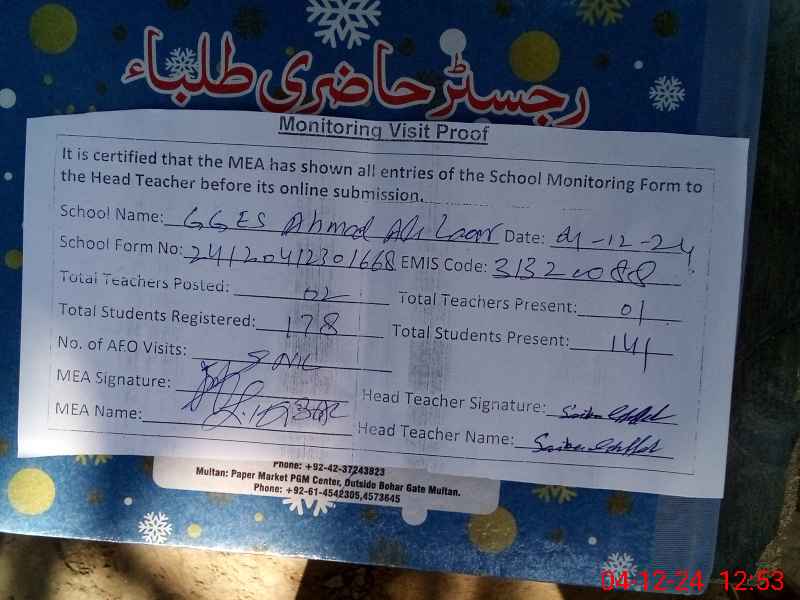 رجسٹر حاضری طلباء
Monitoring Visit Proof
It is certified that the MEA has shown all entries of the School Monitoring Form to
the Head Teacher before its online submission.
School Name: GGES Ahmad Ali Laar Date: 04-12-24
School Form No: 24120412301668 EMIS Code: 31320088
Total Teachers Posted: 02 Total Teachers Present: 01
Total Students Registered: 178 Total Students Present: 141
No. of AEO Visits:
MEA Signature: Head Teacher Signature:
MEA Name: Head Teacher Name:
Phone: +92-42-37243823
Multan: Paper Market PGM Center, Outside Bohar Gate Multan.
Phone: +92-61-4542305,4573645
04-12-24 12:53